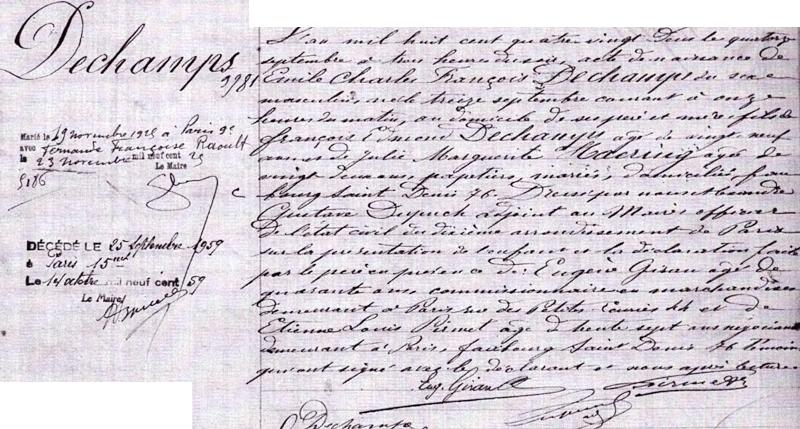 Dechamps
2981
Marié le 19 novembre 1925 à Paris 9e
avec Fernande Françoise Raoult
le 23 novembre mil neuf cent 25
Le Maire
5186
DÉCÉDÉ LE 25 septembre 1959
à Paris 15me
Le 14 octobre mil neuf cent 59
Le Maire
L'an mil huit cent quatre vingt le quatorze
septembre à trois heures du soir, acte de naissance de
Emile Charles François Dechamps du sexe
masculin, né le treize septembre courant à onze
heures du matin, au domicile de ses père et mère, fils de
François Edmond Dechamps âgé de vingt neuf
ans et de Julie Marguerite âgée de
vingt deux ans, papetiers, mariés, domiciliés, fau
bourg Saint Denis 76. Dressé par nous
Gustave adjoint au Maire officier
de l'état civil du dixième arrondissement de Paris
sur la présentation de l'enfant et la déclaration faite
par le père en présence de Eugène Girault âgé de
quarante ans commissionnaire en marchandises
demeurant à Paris rue des Petites Ecuries 44 et de
Etienne Louis âgé de trente sept ans négociant
demeurant à Paris, faubourg Saint Denis 76 témoins
qui ont signé avec le déclarant et nous après lecture.
Eug. Girault
Dechamps